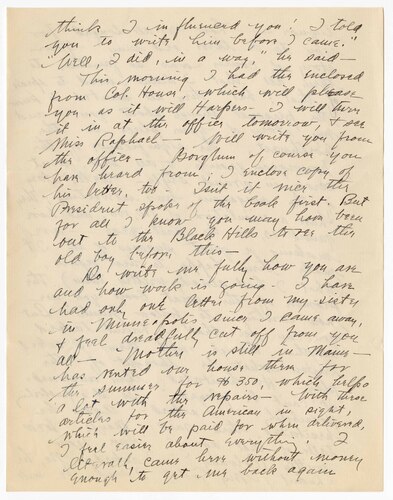 think I influenced you! I told
you to write him before I came."
"Well, I did, in a way," he said—
This morning I had the enclosed
from Col. House, which will please
you, as it will Harpers. I will turn
it in at the office tomorrow, & see
Miss Raphael— Will write you from
the office— Borghum of course you
have heard from; I enclose copy of
his letter, too. Isn't it nice the
President spoke of the book first. But
for all I know you may have been
out to the Black Hills to see the
old boy before this—
Do write me fully how you are
and how work is going. I have
had only one letter from my sister
in Minneapolis since I came away,
& feel dreadfully cut off from you
all— Mother is still in Maine—
has rented our house there for
the summer for $350, which helps
a lot with the repairs— With three
articles for the American in sight,
which will be paid for when delivered,
I feel easier about everything. I
literally came here without money
enough to get me back again